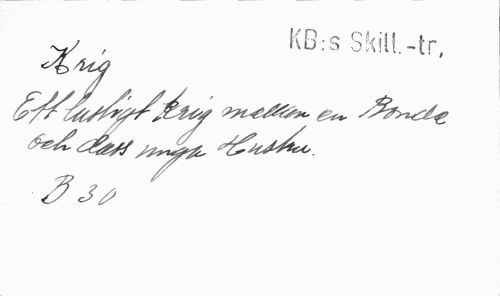 KB:s Skill.-tr.
Krig
Ett lustigt Krig mellan en Bonde
och dess unga Hustru.
B 30